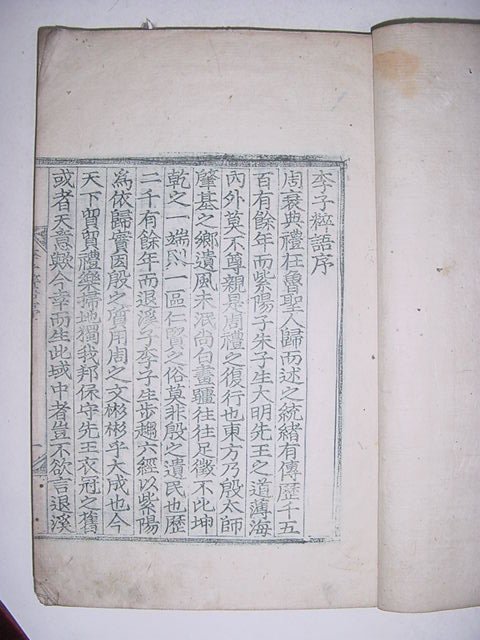 李子粹語序
周衰典禮在魯聖人歸而述之統緒有傳歷千五
百有餘年而紫陽子朱子生大明先王之道薄海
內外莫不尊親是周禮之復行也東方乃殷太師
肇基之鄉遺風未泯尚白畫疆往往足徵不比坤
乾之一端則一區仁賢之俗莫非殷之遺民也歷
二千有餘年而退溪子李子生步趨六經以紫陽
爲依歸實因殷之質用周之文彬彬乎大成也今
天下貿貿禮樂掃地獨我邦保守先王衣冠之舊
或者天意歟今幸而生此域中者豈不欲言退溪